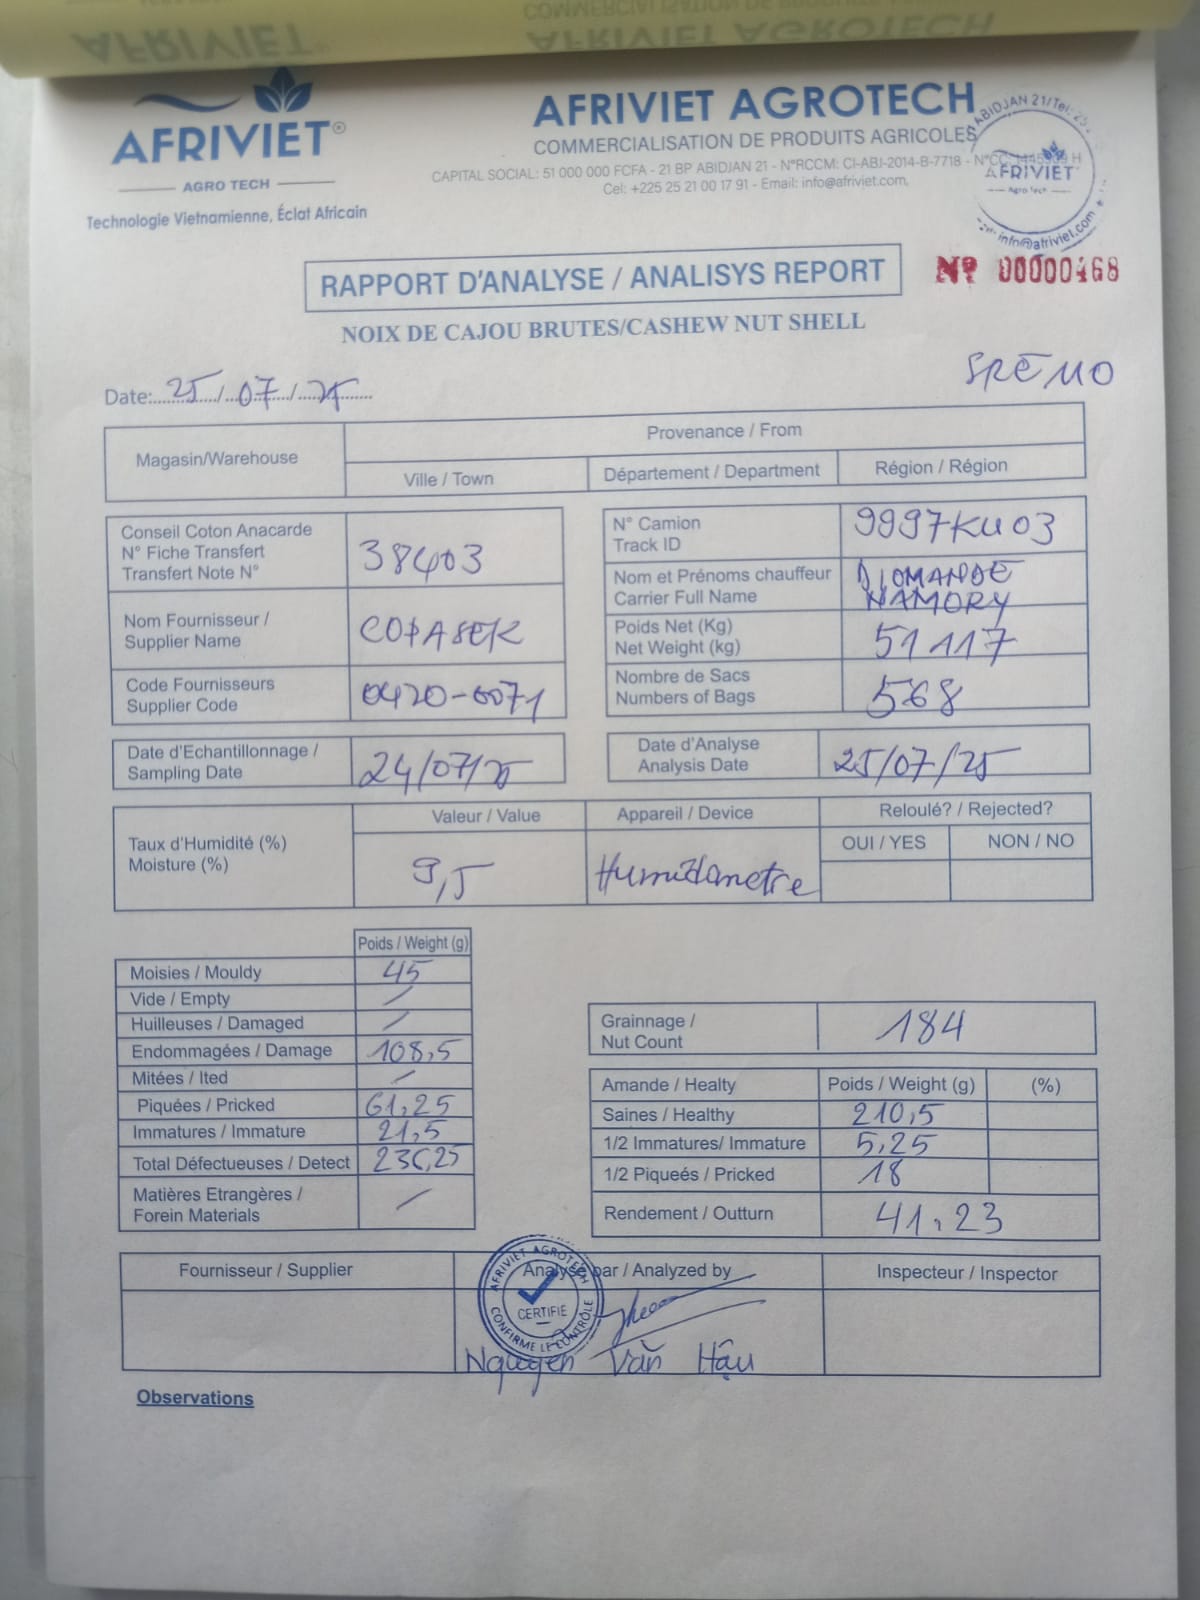 AFRIVIET AGROTECH
AFRIVIET®
AGRO TECH
Technologie Vietnamienne, Éclat Africain
AFRIVIET AGROTECH
COMMERCIALISATION DE PRODUITS AGRICOLES
CAPITAL SOCIAL: 51 000 000 FCFA - 21 BP ABIDJAN 21 - N°RCCM: CI-ABJ-2014-B-7718 - N°CC:
Cel: +225 25 21 00 17 91 - Email: info@afriviet.com,
ABIDJAN 21/Tel: 25
AFRIVIET
Agro tech
info@afriviet.com
RAPPORT D'ANALYSE / ANALISYS REPORT
Nº 00000468
NOIX DE CAJOU BRUTES/CASHEW NUT SHELL
Date: 25/07/25
Magasin/Warehouse
Provenance / From
Ville / Town
Département / Department
Région / Région
Conseil Coton Anacarde
N° Fiche Transfert
Transfert Note N°
38403
N° Camion
Track ID
9997KU03
Nom et Prénoms chauffeur
Carrier Full Name
DIOMANDE
NAMORY
Nom Fournisseur /
Supplier Name
COPASEK
Poids Net (Kg)
Net Weight (kg)
51117
Code Fournisseurs
Supplier Code
0420-0071
Nombre de Sacs
Numbers of Bags
568
Date d'Echantillonnage /
Sampling Date
24/07/25
Date d'Analyse
Analysis Date
25/07/25
Taux d'Humidité (%)
Moisture (%)
Valeur / Value
9,5
Appareil / Device
Humidametre
Reloulé? / Rejected?
OUI / YES
NON / NO
Poids / Weight (g)
Moisies / Mouldy 45
Vide / Empty /
Huilleuses / Damaged /
Endommagées / Damage 108,5
Mitées / Ited /
Piquées / Pricked 61,25
Immatures / Immature 21,5
Total Défectueuses / Detect 236,25
Matières Etrangères /
Forein Materials /
Grainnage /
Nut Count
184
Amande / Healty Poids / Weight (g) (%)
Saines / Healthy 210,5
1/2 Immatures/ Immature 5,25
1/2 Piqueés / Pricked 18
Rendement / Outturn 41,23
Fournisseur / Supplier
Analysé par / Analyzed by
Inspecteur / Inspector
AFRIVIET AGROTECH
CERTIFIE
CONFIRME LE CONTRÔLE
Nguyen Văn Hậu
Observations